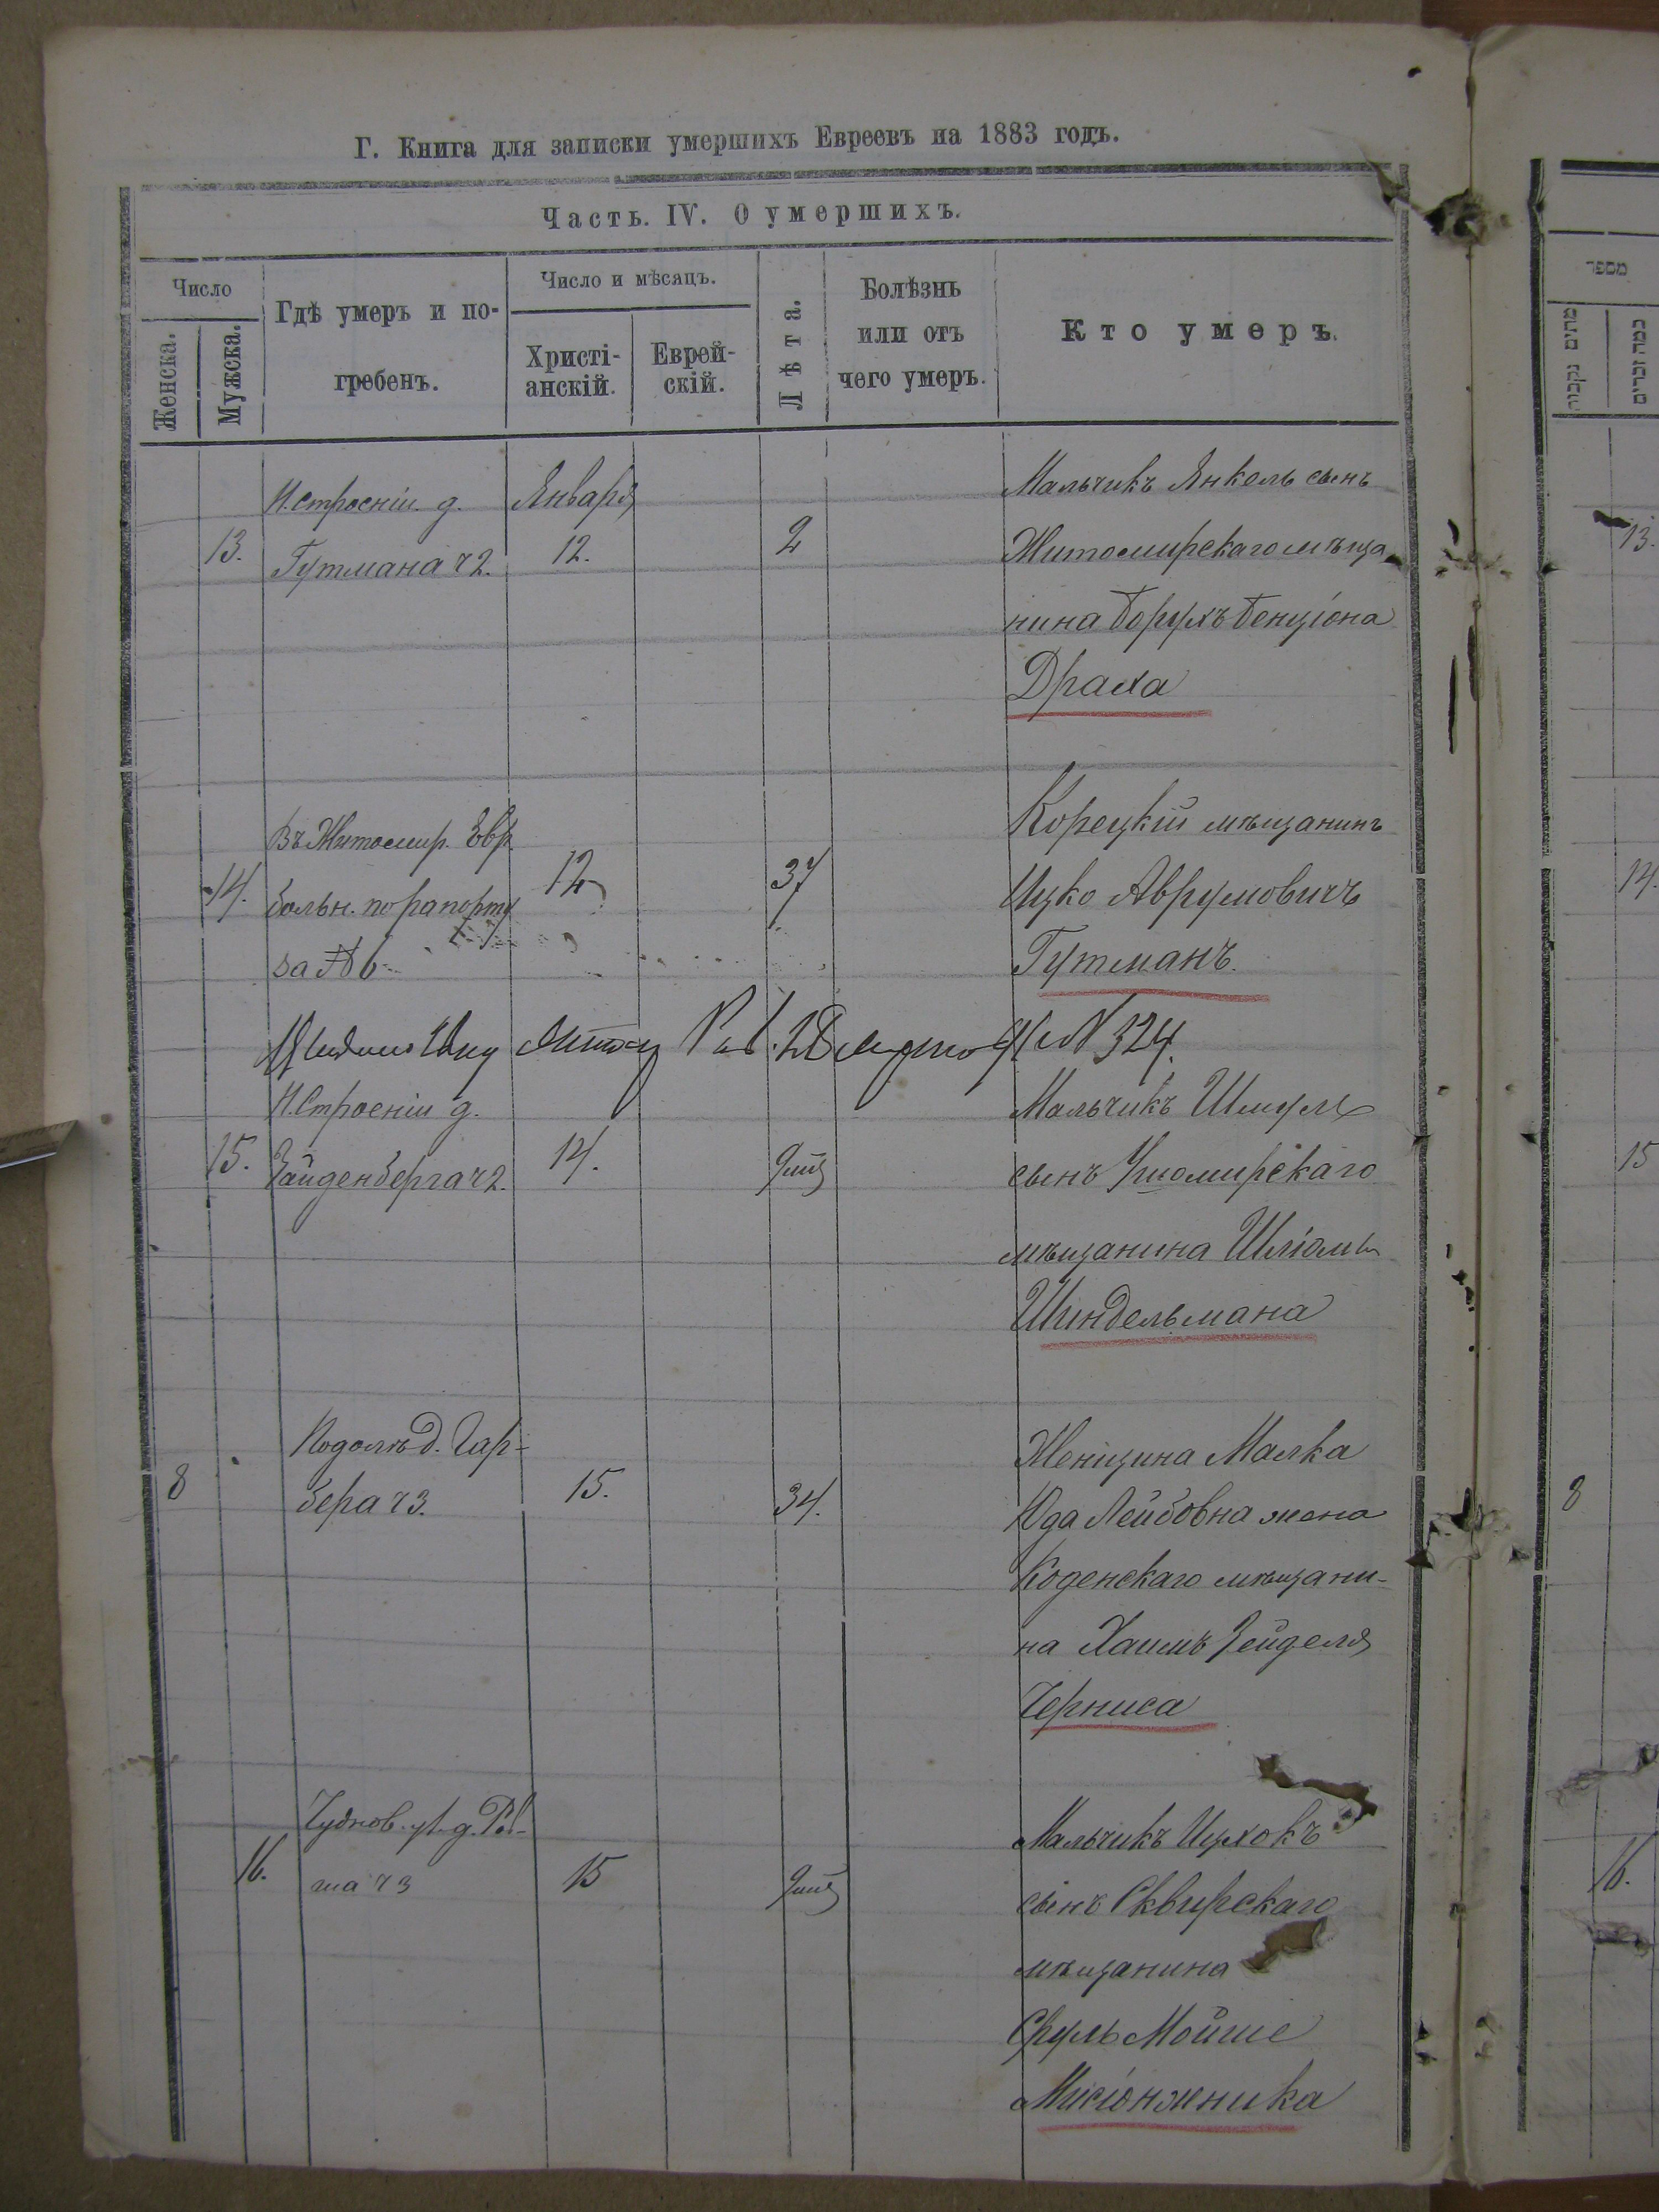 Г. Книга для записки умершихъ Евреевъ на 1883 годъ.
Часть. IV. О умершихъ.
Число
Женска.
Мужска.
Гдѣ умеръ и по-
гребенъ.
Число и мѣсяцъ.
Христі-
анскій.
Еврей-
скій.
Лѣта.
Болѣзнь
или отъ
чего умеръ.
Кто умеръ.
מספר
13.
Н.строеніи. д.
Гутмана ч2.
Января
12.
2
Мальчикъ Янкель сынъ
Житомирскаго мѣща
нина Борухъ Бенціона
Драха
13.
14.
Въ Житомир. Евр
больн. по рапорту
за № 6
12
37
Корецкій мѣщанинъ
Ицко Аврумовичъ
Гутманъ.
14.
№ 324.
15.
Н.Строеніи д.
Зайденберга ч2.
14.
Мальчикъ Шмуль
сынъ Ушомирскаго
мѣщанина Шліомы
Шиндельмана
15
8
Подолъ д. Гар-
бера ч3.
15.
34.
Женщина Малка
Юда Лейбовна жена
Коденскаго мѣщани-
на Хаимъ Зейделя
Черниса
8
16.
Чуднов. ул. д.
ша ч3
15
Мальчикъ Ицхокъ
сынъ Сквирскаго
мѣщанина
Сруль Мойше
Мисіонжника
16.